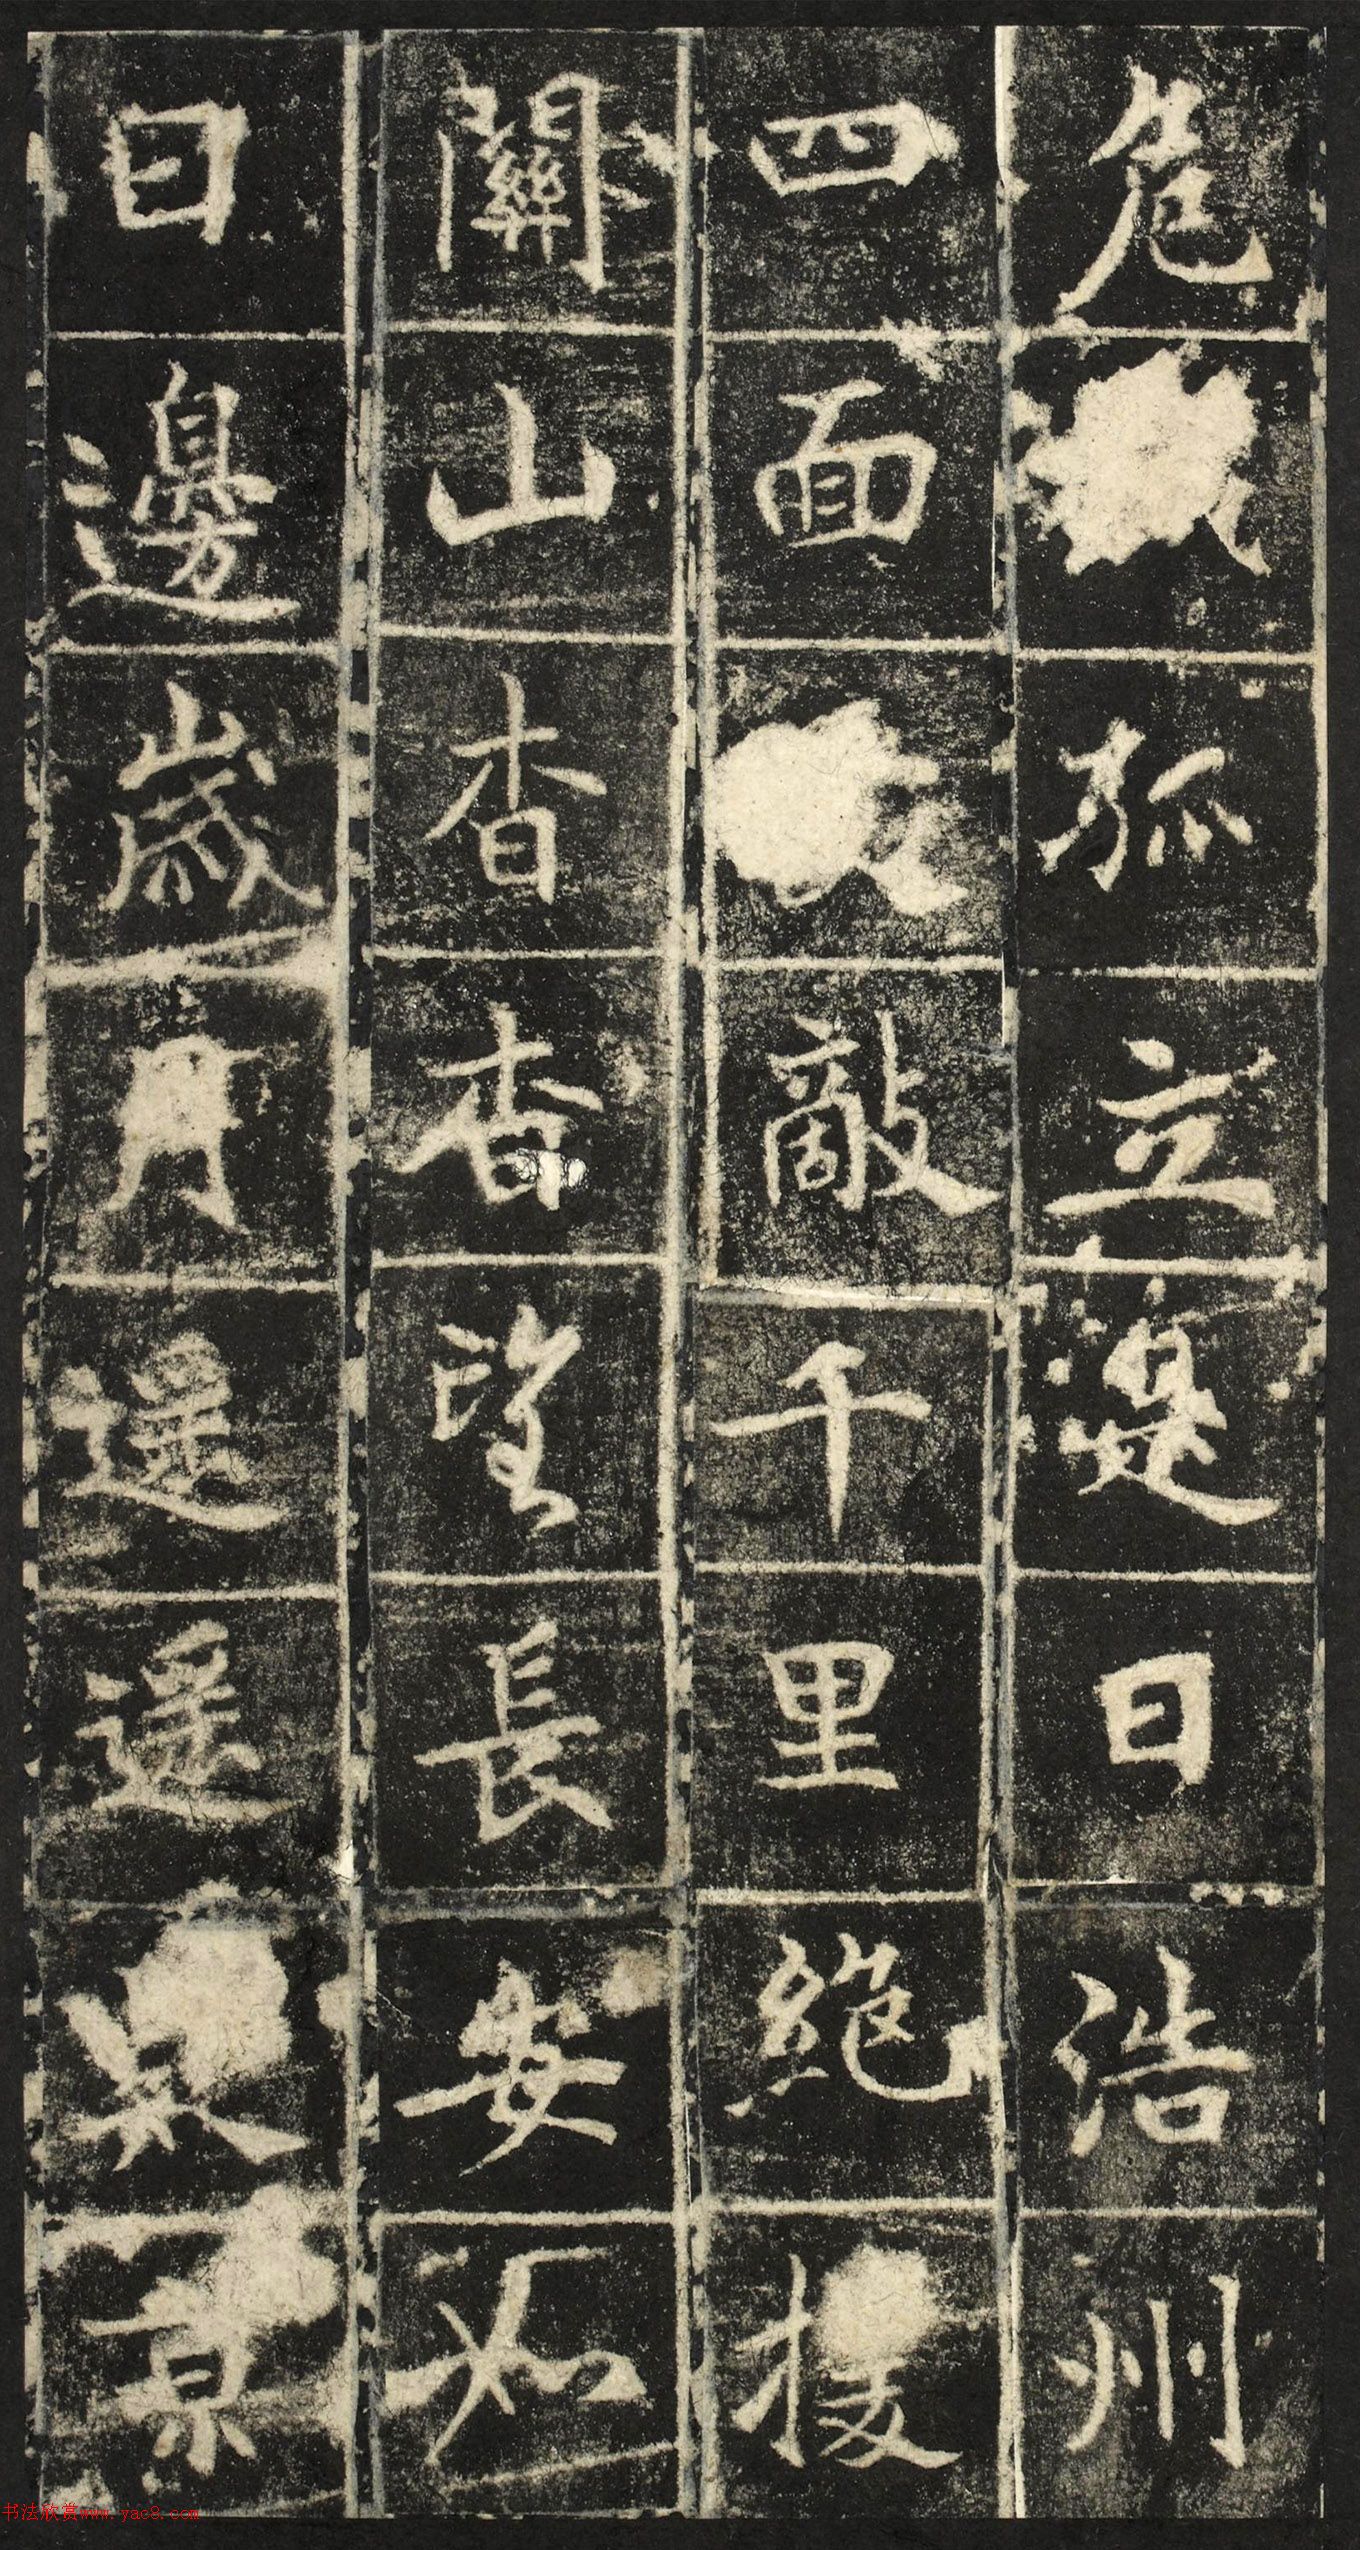 危孤立曰浩州
四面敵千里絕援
關山杳杳望長安如
日邊歲月遙遙景
书法欣赏www.yac8.com